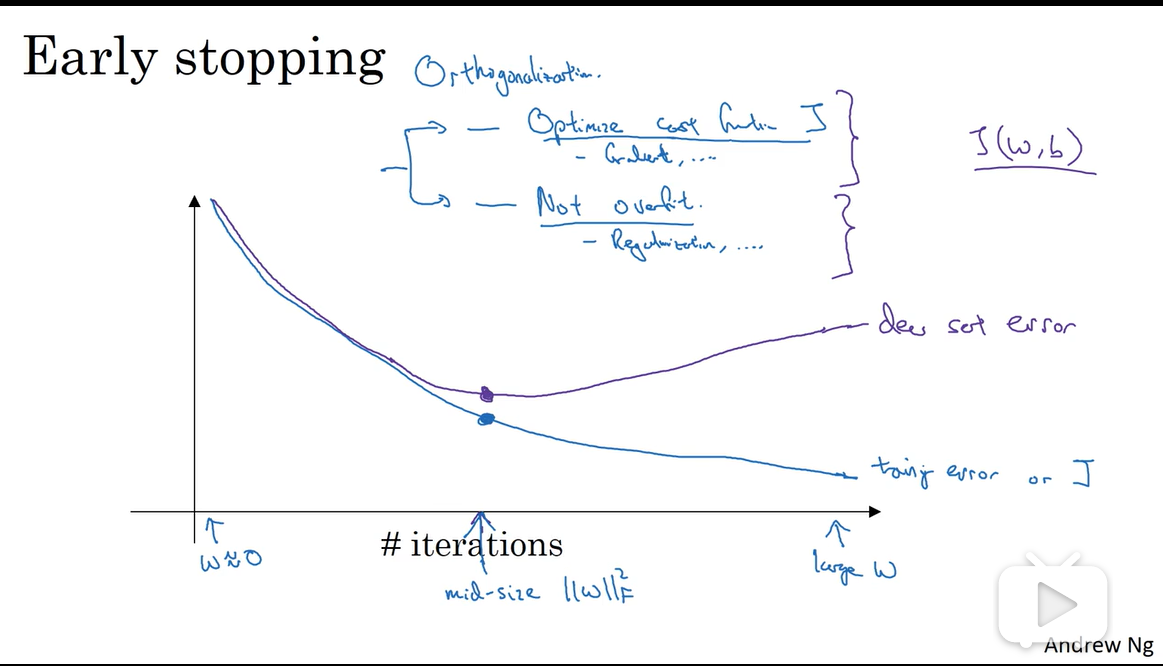 Early stopping
Orthogonalization.
— Optimize cost function J
- Gradient, ....
J(w,b)
— Not overfit.
- Regularization, ....
dev set error
training error or J
# iterations
w≈0
large w
mid-size ||w||²_F
Andrew Ng